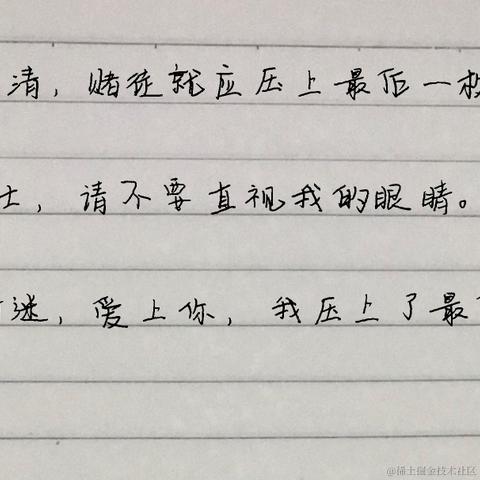 清，赌徒就应压上最后一枚
士，请不要直视我的眼睛。
迷，爱上你，我压上了最
@稀土掘金技术社区